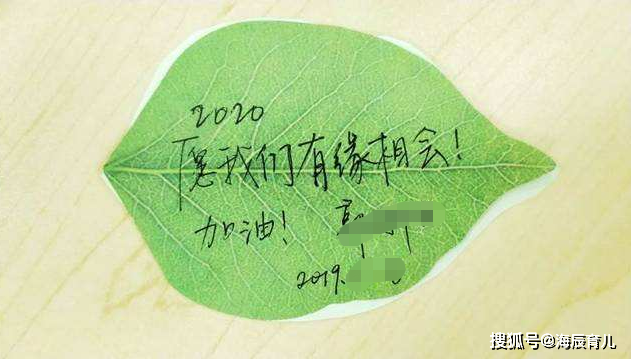 2020
愿我们有缘相会！
加油！
2019.
搜狐号@海辰育儿